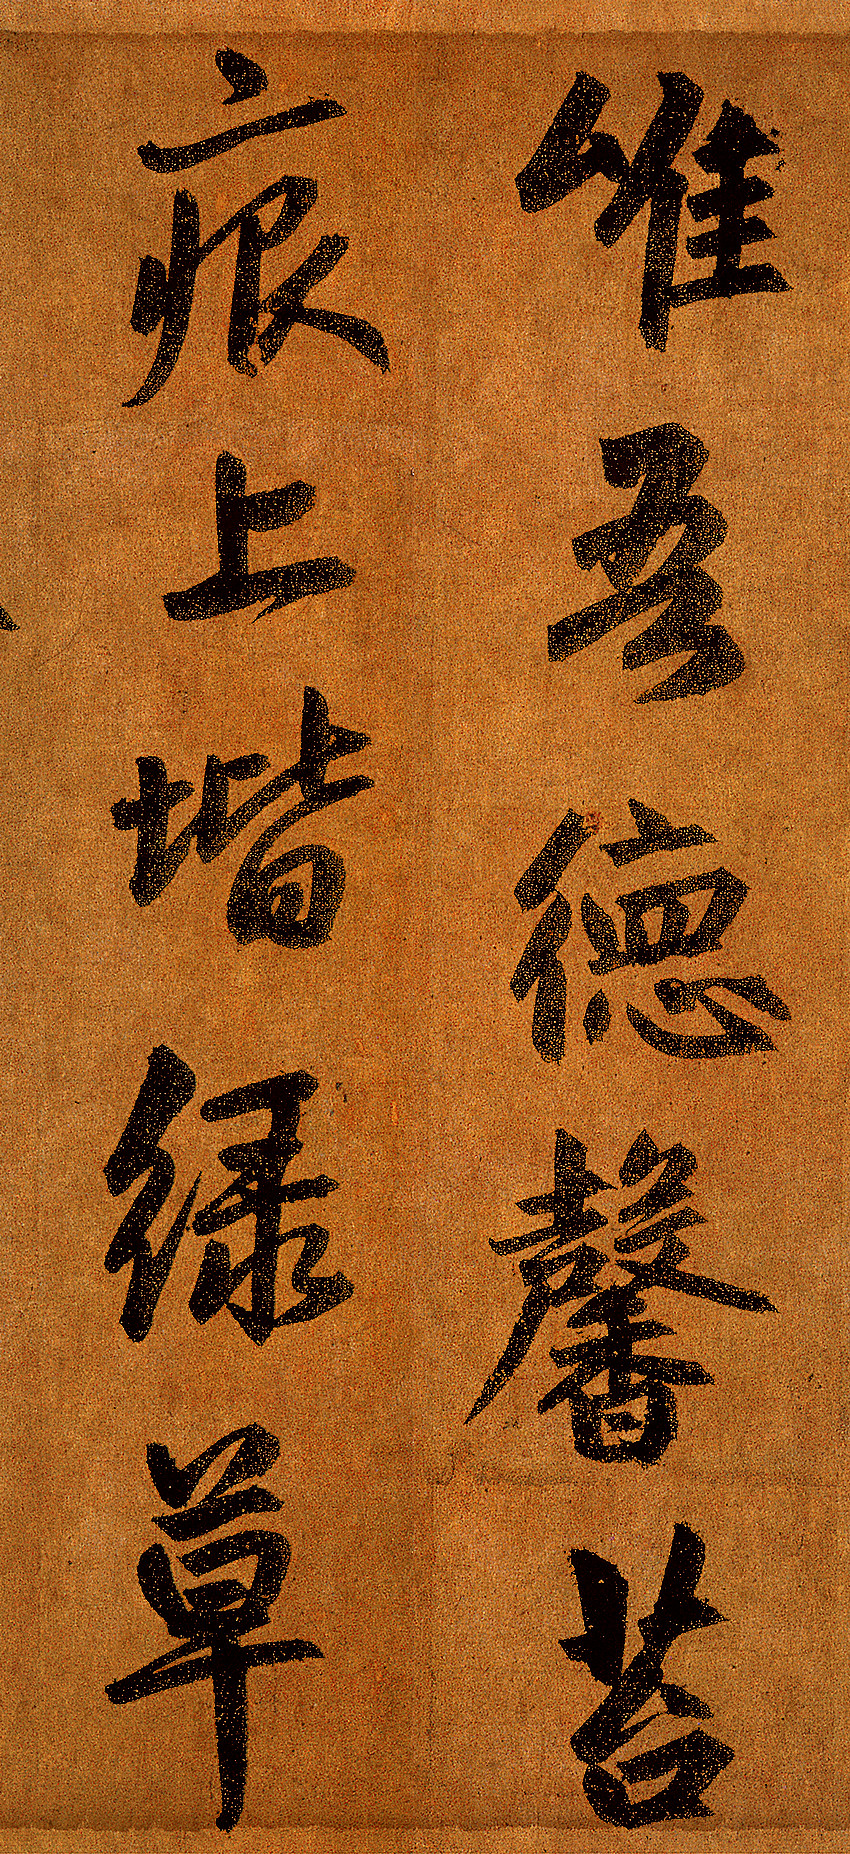 唯吾德馨苔
痕上堦綠草